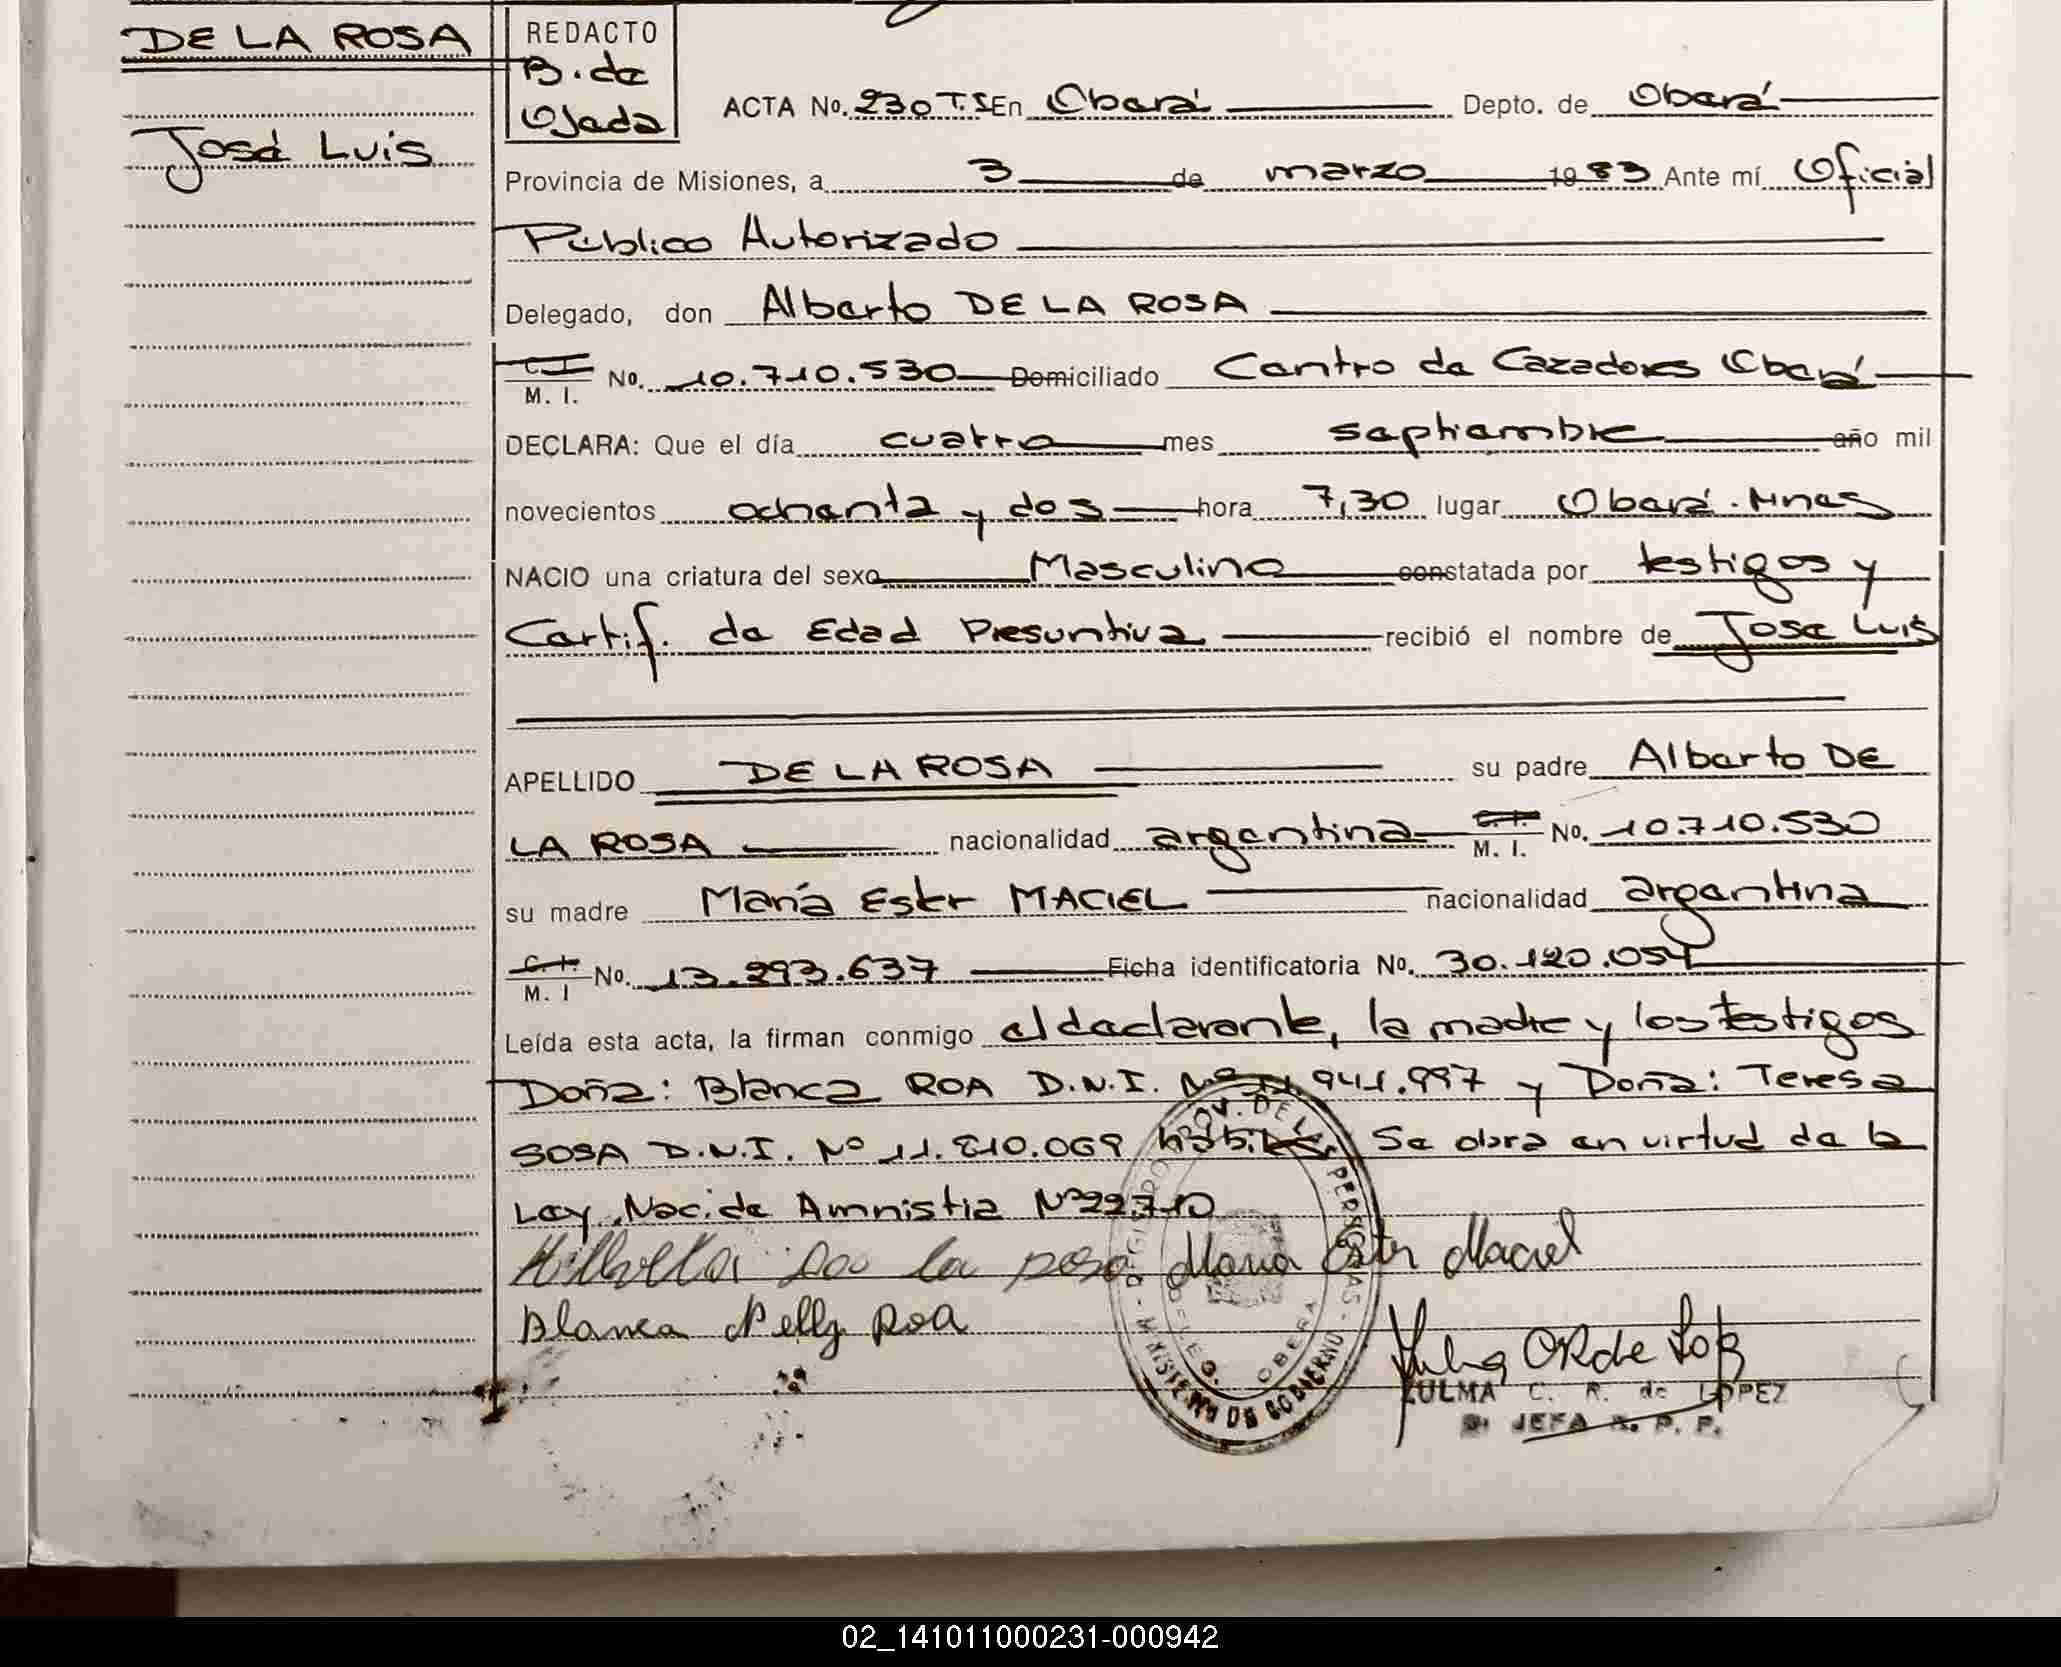 DE LA ROSA
José Luis
REDACTO
B. de
Ojeda
ACTA No. 230 T.I En Oberá Depto. de Oberá
Provincia de Misiones, a 3 de marzo 1983 Ante mí Oficial
Público Autorizado
Delegado, don Alberto DE LA ROSA
C.I
M. I. No. 10.710.530 Domiciliado Centro de Cazadores Oberá
DECLARA: Que el día cuatro mes septiembre año mil
novecientos ochenta y dos hora 7,30 lugar Oberá. Mnes
NACIO una criatura del sexo Masculino constatada por testigos y
Certif. de Edad Presuntiva recibió el nombre de Jose Luis
APELLIDO DE LA ROSA su padre Alberto DE
LA ROSA nacionalidad argentina C.I. M. I. No. 10.710.530
su madre María Ester MACIEL nacionalidad argentina
C.I.
M. I No. 13.293.637 Ficha identificatoria No. 30.120.054
Leída esta acta, la firman conmigo el declarante, la madre y los testigos
Doña: Blanca ROA D.N.I. Nº 11.941.997 y Doña: Teresa
SOSA D.N.I. Nº 11.810.069 hábiles, Se obra en virtud de la
Ley Nac. de Amnistia Nº 22.710
la rosa Maria Ester Maciel
Blanca Nelly Roa
REGISTRO PROV. DE LAS PERSONAS - MINISTERIO DE GOBIERNO -
DELEG. OBERA
ZULMA C. R. de LOPEZ
JEFA R. P. P.
02_141011000231-000942